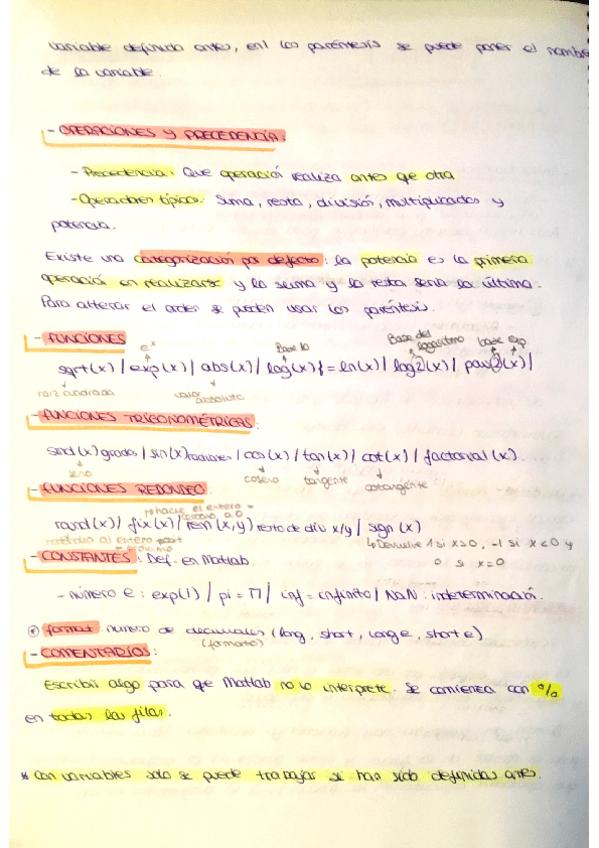 variable definida antes, en los paréntesis se puede poner el nombre
de la variable.
- OPERACIONES Y PRECEDENCIA:
- Precedencia: Que operación realiza antes que otra
- Operadores típicos: Suma, resta, división, multiplicados y
potencia.
Existe una categorización por defecto: la potencia es la primera
operación en realizarse y la suma y la resta sería la última.
Para alterar el orden se pueden usar los paréntesis.
- FUNCIONES
e^x Base 10 Base del logaritmo base exp
sqrt(x) / exp(x) / abs(x) / log(x) = ln(x) / log2(x) / pow2(x) /
raiz cuadrada valor absoluto
- FUNCIONES TRIGONOMÉTRICAS:
sind(x) grados / sin(x) radianes / cos(x) / tan(x) / cot(x) / factorial(x).
seno coseno tangente cotangente
- FUNCIONES REDONDEO:
hacia el entero
cercano a 0
round(x) / fix(x) / rem(x,y) resto de div x/y / sign(x)
al entero más próximo
Devuelve 1 si x>0, -1 si x<0 y
0 si x=0
- CONSTANTES: Def. en Matlab.
- número e: exp(1) / pi = π / inf = infinito / NaN: indeterminación.
format número de decimales (long, short, long e, short e)
(formato)
- COMENTARIOS:
Escribir algo para que Matlab no lo interprete. Se comienza con %
en todas las filas.
* Con variables solo se puede trabajar si han sido definidas antes.